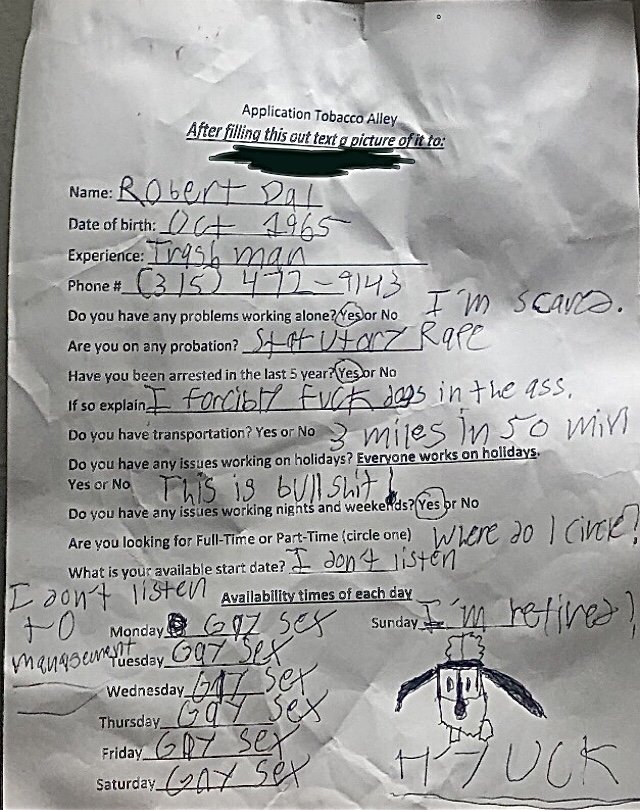 Application Tobacco Alley
After filling this out text a picture of it to:
Name: Robert Dal
Date of birth: Oct 1965
Experience: Trash man
Phone # (315) 472-9143
Do you have any problems working alone? Yes or No I'm scared.
Are you on any probation? Statutory Rape
Have you been arrested in the last 5 year? Yes or No
If so explain I forcibly fuck dogs in the ass.
Do you have transportation? Yes or No 3 miles in 50 min
Do you have any issues working on holidays? Everyone works on holidays.
Yes or No This is bullshit!
Do you have any issues working nights and weekends? Yes or No
Are you looking for Full-Time or Part-Time (circle one) Where do I circle?
What is your available start date? I don't listen
I don't listen
to
management
Availability times of each day
Monday Gay sex
Sunday I'm retired!
Tuesday Gay sex
Wednesday Gay sex
Thursday Gay sex
Friday Gay sex
Saturday Gay sex
H'YUCK